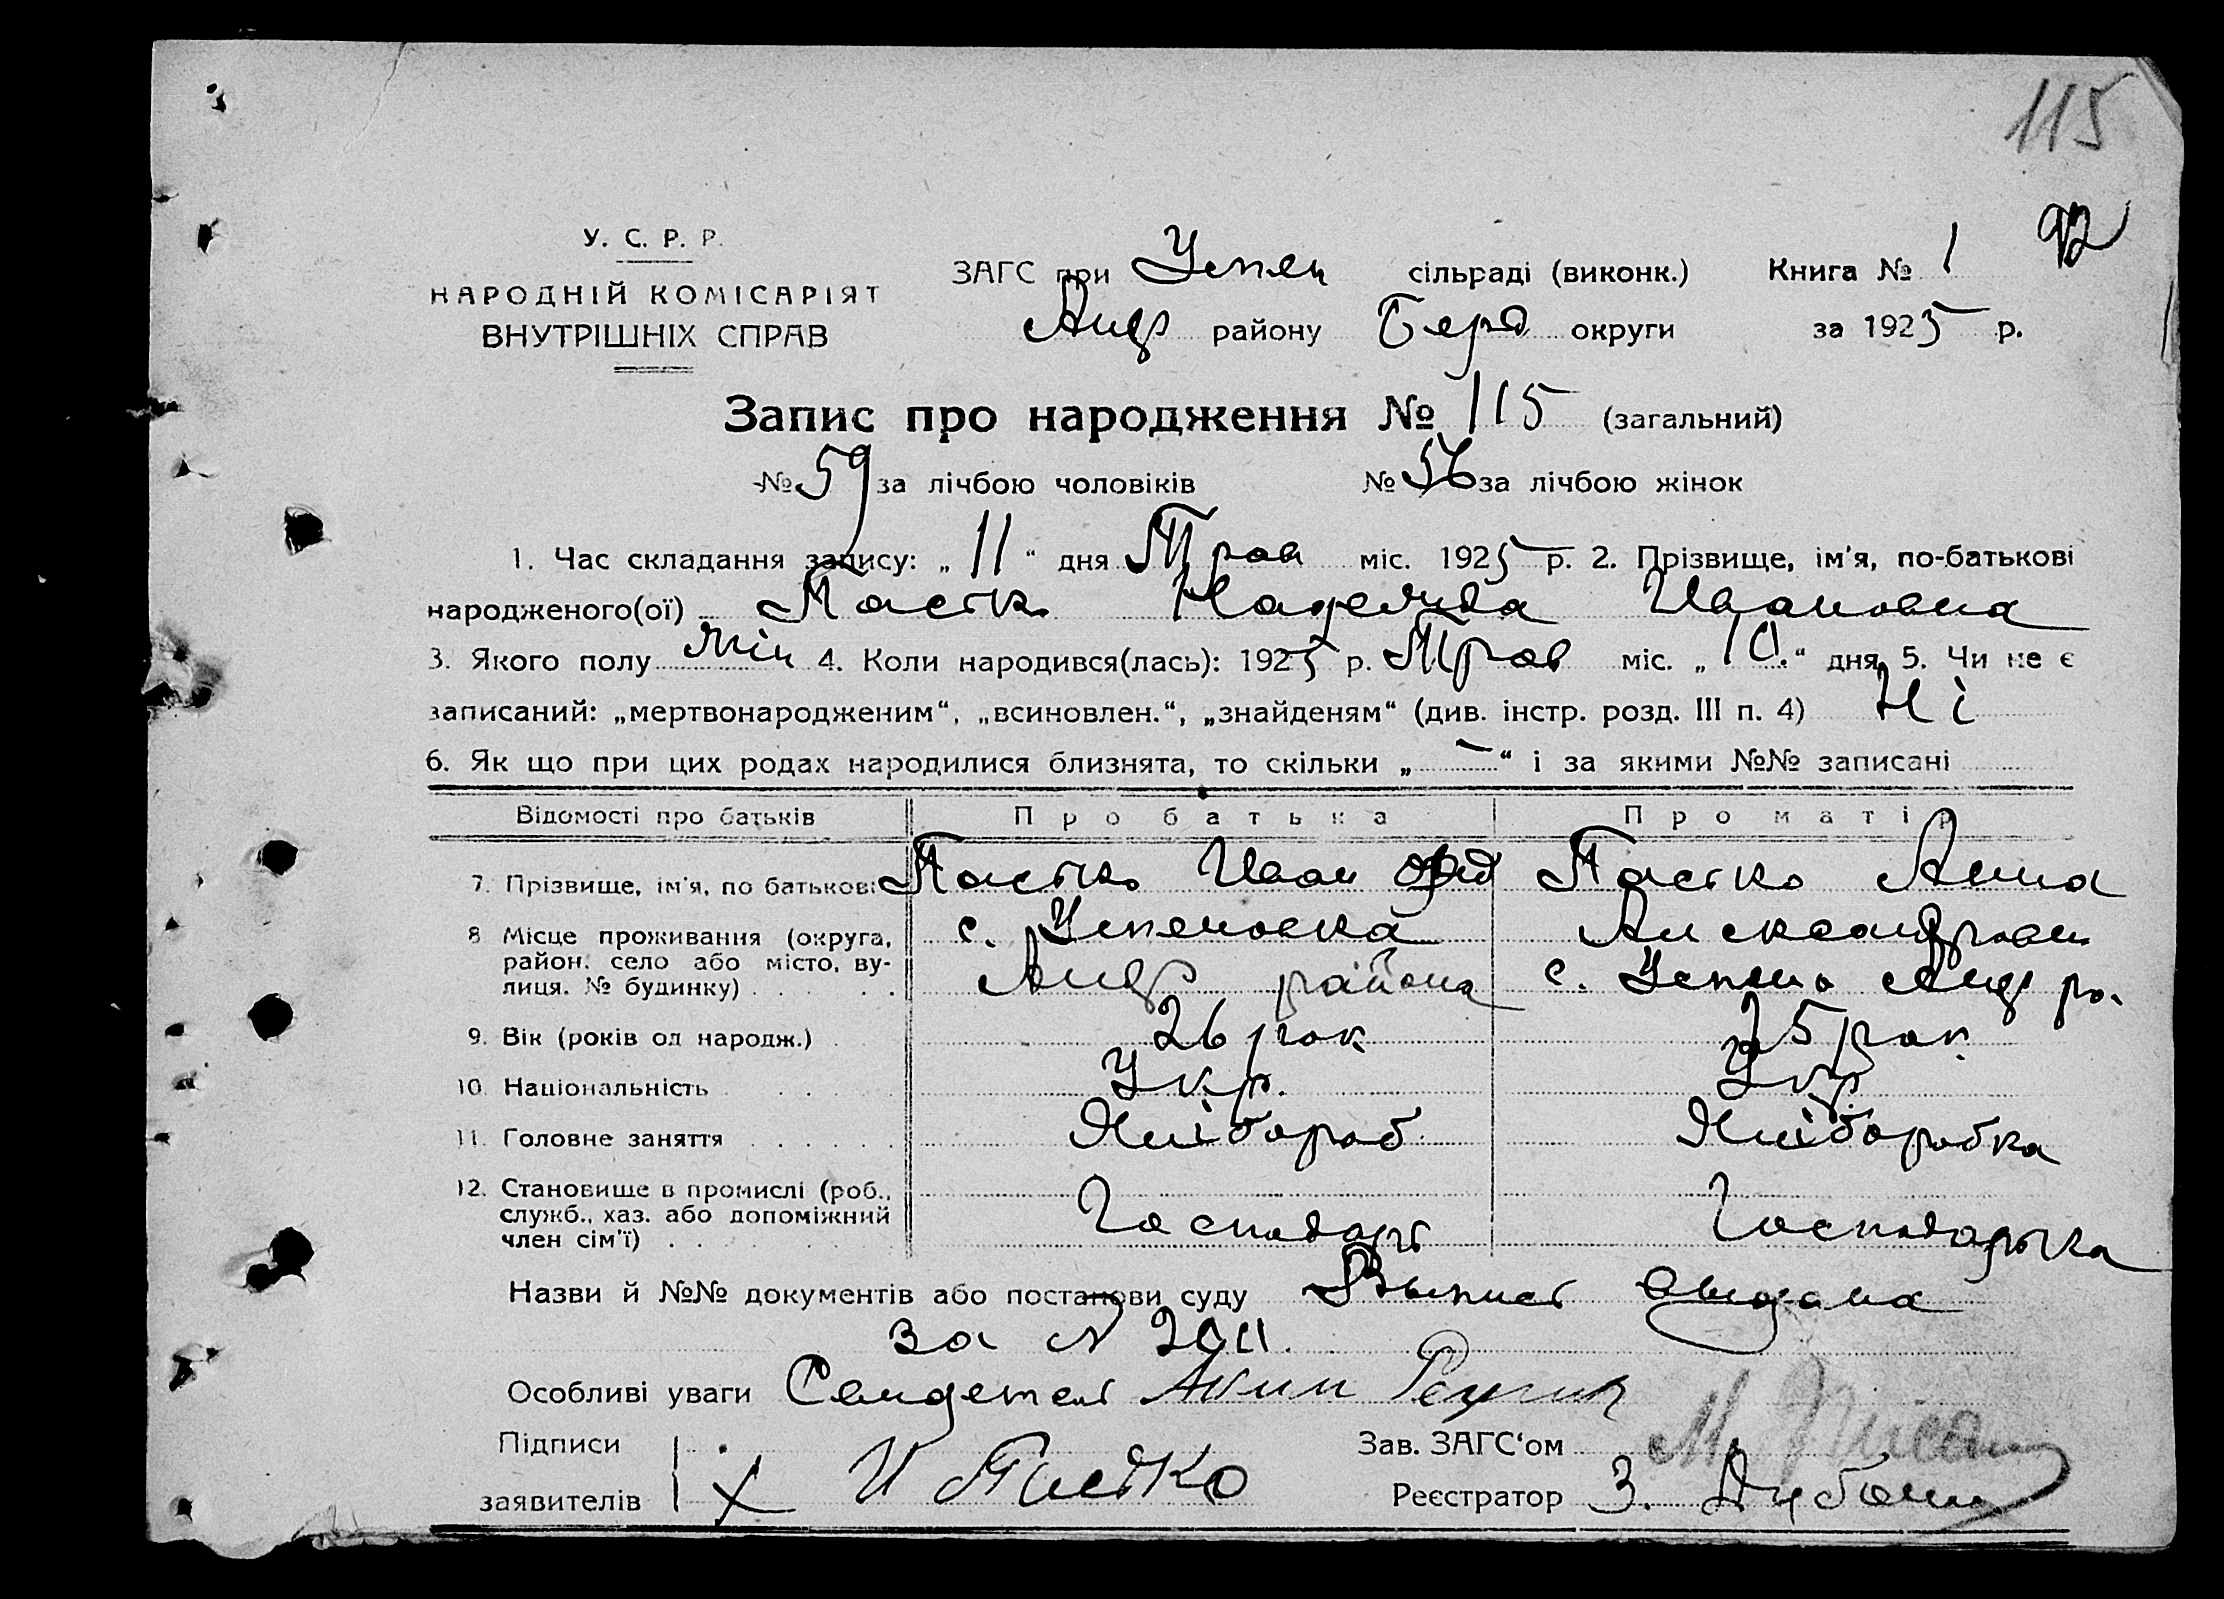 115
92
У. С. Р. Р.
НАРОДНІЙ КОМІСАРІЯТ
ВНУТРІШНІХ СПРАВ
ЗАГС при Успен сільраді (виконк.) Книга № 1
Андр району Берд округи за 1925 р.
Запис про народження № 115 (загальний)
№ 59 за лічбою чоловіків № 56 за лічбою жінок
1. Час складання запису: „ 11 “ дня Трав міс. 1925 р. 2. Прізвище, ім'я, по-батькові
народженого(ої) Пастко Надежда Ивановна
3. Якого полу жін 4. Коли народився(лась): 1925 р. Трав міс. „ 10. “ дня 5. Чи не є
записаний: „мертвонародженим“, „всиновлен.“, „знайденям“ (див. інстр. розд. III п. 4) Ні
6. Як що при цих родах народилися близнята, то скільки „ — “ і за якими №№ записані
Відомості про батьків Про батька Про матір
7. Прізвище, ім'я, по батькові Пастко Иван Пастко Анна
8 Місце проживання (округа, с. Успеновка Александровн
район, село або місто, ву-
лиця, № будинку) Андр района с. Успено Андр ра.
9. Вік (років од народж.) 26 рок 25 рок
10. Національність Укр. Укр.
11. Головне заняття Хлібороб Хлібаробка
12. Становище в промислі (роб.,
служб., хаз. або допоміжний
член сім'ї) Господарь Господарька
Назви й №№ документів або постанови суду Выпись выдана
за №
Особливі уваги Свидетель Аким
Підписи Зав. ЗАГС‘ом
заявителів X И Пастко Реєстратор З.